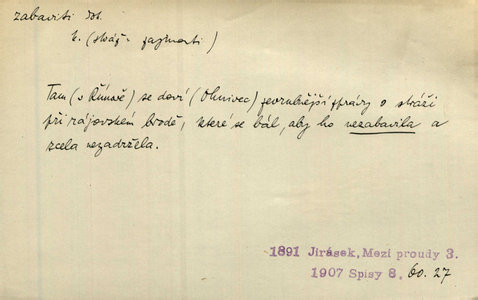 zabaviti dok.
k. (stráž - zajmouti)
Tam (v Římově) se doví (Ohnivec) zevrubnější zprávy o stráži
při rájovském brodě, které se bál, aby ho nezabavila a
zcela nezadržela.
1891 Jirásek, Mezi proudy 3.
1907 Spisy 8, 60. 27